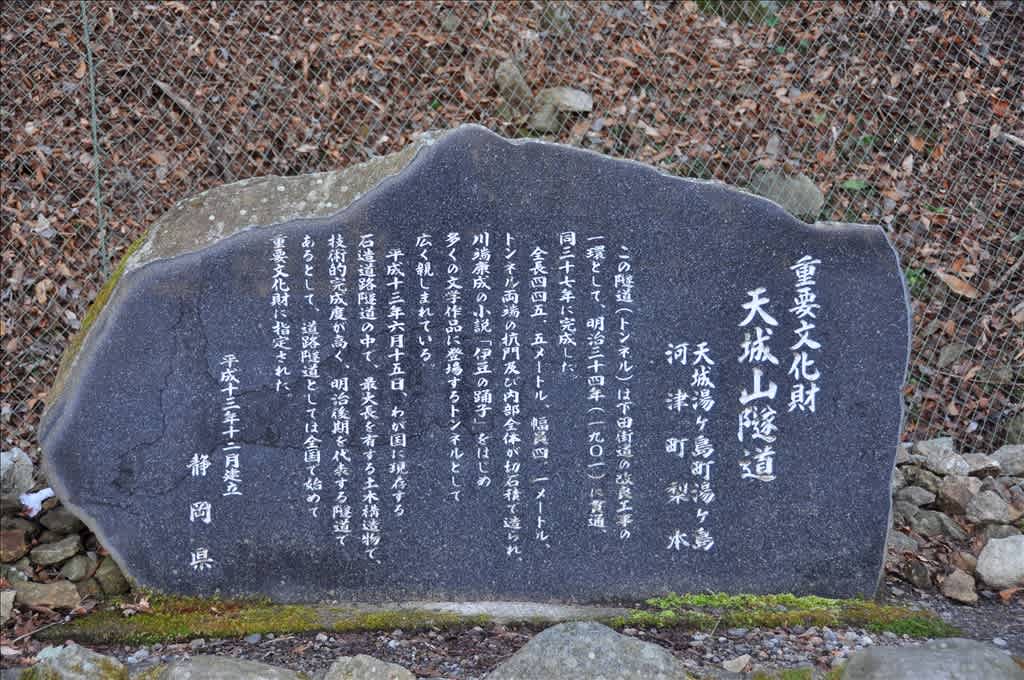 重要文化財
天城山隧道
天城湯ヶ島町湯ヶ島
河津町梨本
この隧道(トンネル)は下田街道の改良工事の
一環として、明治三十四年(一九〇一)に貫通、
同三十七年に完成した。
全長四四五、五メートル、幅員四、一メートル、
トンネル両端の抗門及び内部全体が切石積で造られ
川端康成の小説「伊豆の踊子」をはじめ
多くの文学作品に登場するトンネルとして
広く親しまれている。
平成十三年六月十五日、わが国に現存する
石造道路隧道の中で、最大長を有する土木構造物で、
技術的完成度が高く、明治後期を代表する隧道で
あるとして、道路隧道としては全国で始めて
重要文化財に指定された。
平成十三年十二月建立
静岡県